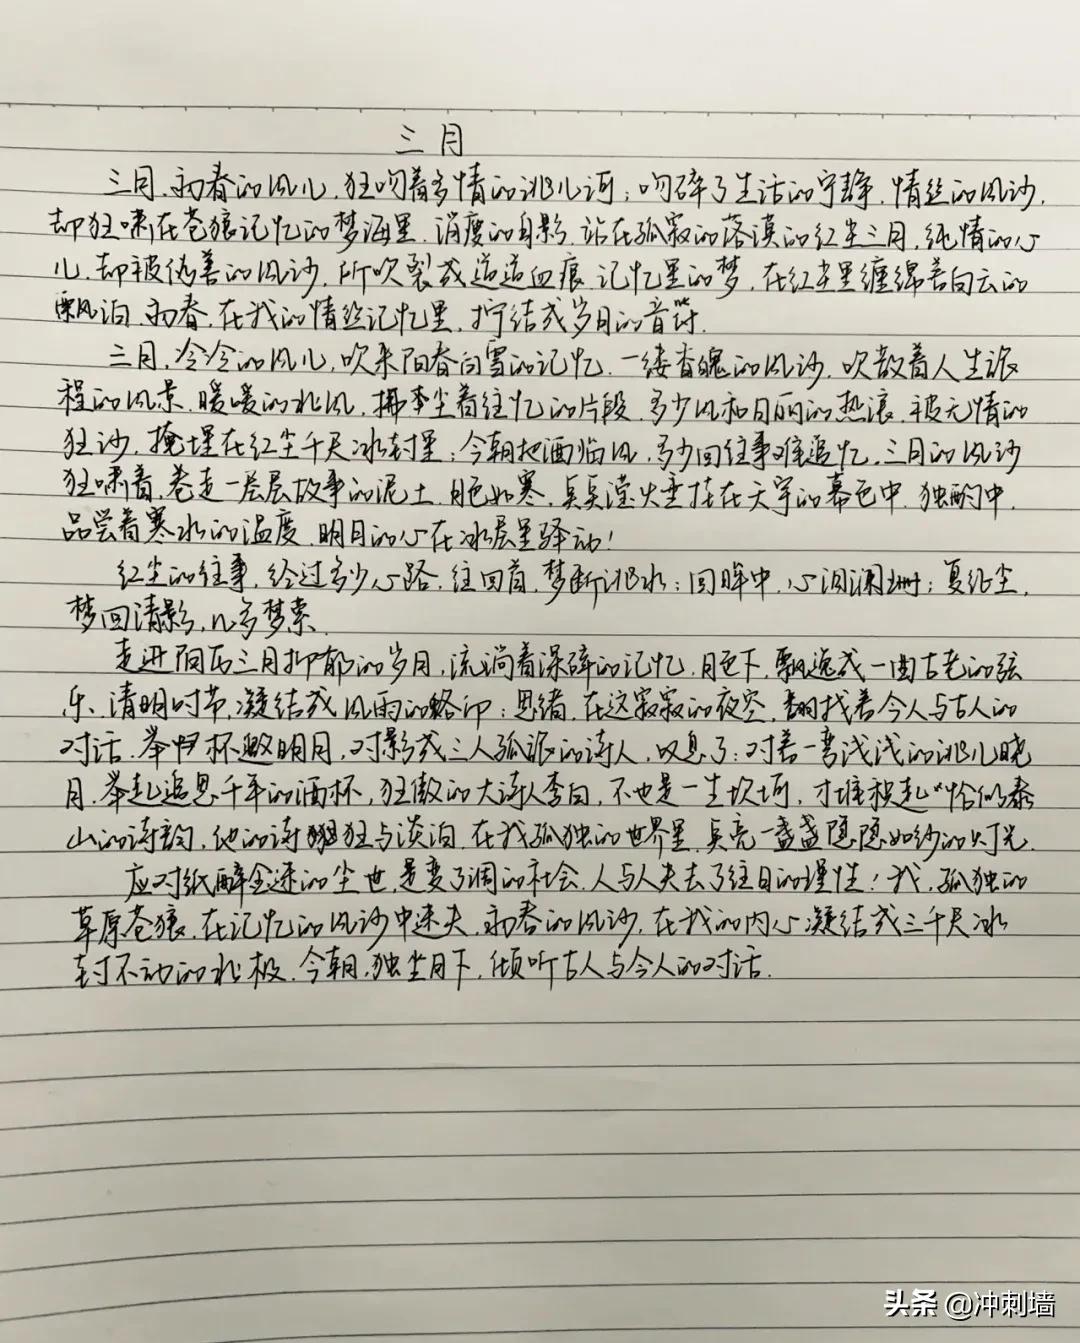 三月
三月、初春的风儿,狂吻着多情的桃儿河;吻碎了生活的宁静,情丝的风沙,
却狂啸在苍狼记忆的梦海里、消度的身影、站在孤寂的落漠的红尘三月,纯情的心
儿、却被伪善的风沙,所吹裂成道道血痕、记忆里的梦,在红尘里缠绵着白云的
飘泊、初春,在我的情丝记忆里,拧结成岁月的音符.
三月、冷冷的风儿,吹来阳春白雪的记忆、一缕香魄的风沙,吹散着人生旅
程的风景、暖暖的北风,拂尘着往忆的片段、多少风和日丽的热浪、被无情的
狂沙,掩埋在红尘千尺冰封里;今朝把酒临风,多少回往事难追忆,三月的风沙
狂啸着,卷走一层层故事的泥土、月色如寒,点点滢火垂挂在天宇的幕色中、独酌中,
品尝着寒水的温度、明月的心在冰层里驿动!
红尘的往事,经过多少心路、往回首,梦断桃水;回眸中,心泪澜珊;复征尘,
梦回清影,几多梦索.
走进阴历三月抑郁的岁月,流淌着深碎的记忆、月色下,飘逸成一曲古老的弦
乐、清明时节,凝结成风雨的烙印;思绪,在这寂寂的夜空,翻找着今人与古人的
对话、举杯邀明月,对影成三人孤旅的诗人,叹息了;对着一弯浅浅的桃儿晓
月、举起追思千年的酒杯,狂傲的大诗人李白,不也是一生坎坷,才堆积起“恰似泰
山的诗韵,他的诗狂与淡泊、在我孤独的世界里、点亮一盏盏隐隐如纱的灯光.
应对纸醉金迷的尘世、是变了调的社会、人与人失去了往日的理性!我,孤独的
草原苍狼、在记忆的风沙中迷失、初春的风沙,在我的内心凝结成三千尺冰
封不动的北极、今朝,独坐月下,倾听古人与今人的对话.
头条 @冲刺墙